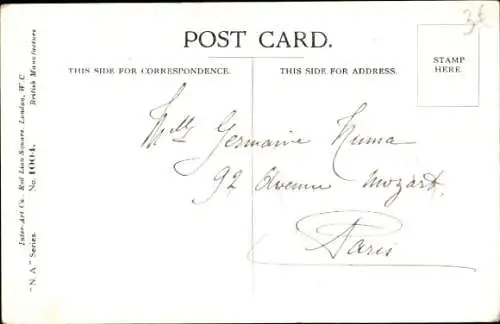 3€
POST CARD.
THIS SIDE FOR CORRESPONDENCE.
THIS SIDE FOR ADDRESS.
STAMP
HERE.
Inter-Art Co., Red Lion Square, London, W.C.
British Manufacture
"N.A" Series.
No. 1004.
Melle Germaine Numa
92 Avenue Mozart
Paris